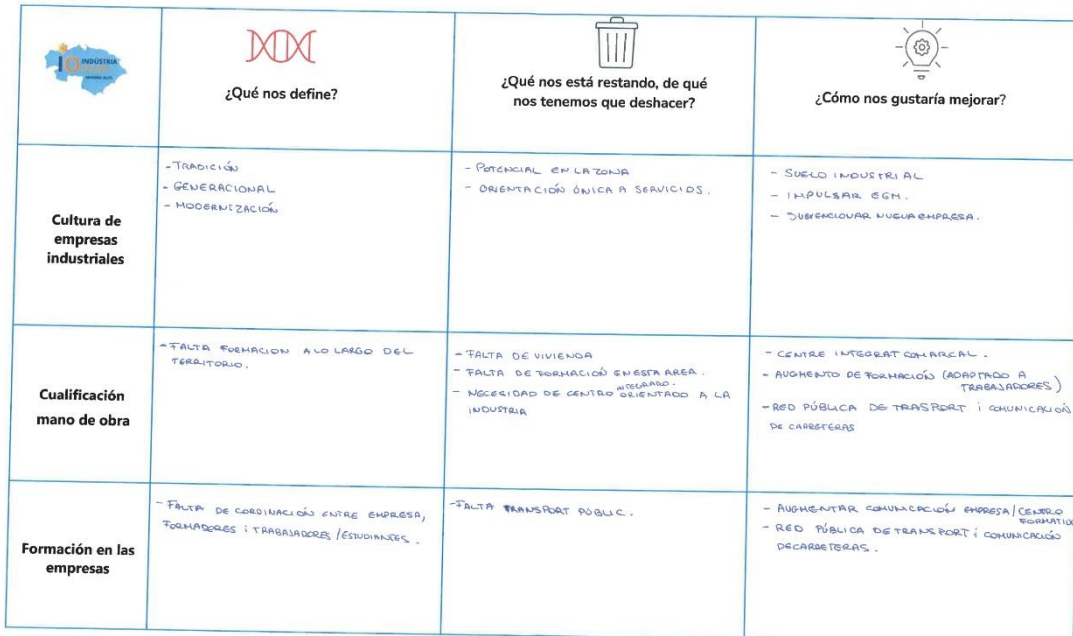 INDÚSTRIA
MARINA ALTA
¿Qué nos define?
¿Qué nos está restando, de qué
nos tenemos que deshacer?
¿Cómo nos gustaría mejorar?
Cultura de
empresas
industriales
- TRADICIÓN
- GENERACIONAL
- MODERNIZACIÓN
- POTENCIAL EN LA ZONA
- ORIENTACIÓN ÚNICA A SERVICIOS.
- SUELO INDUSTRIAL
- IMPULSAR EGM.
- SUBVENCIONAR NUEVA EMPRESA.
Cualificación
mano de obra
- FALTA FORMACION A LO LARGO DEL
TERRITORIO.
- FALTA DE VIVIENDA
- FALTA DE FORMACIÓN EN ESTA AREA.
- NECESIDAD DE CENTRO INTEGRARO. ORIENTADO A LA
INDUSTRIA
- CENTRE INTEGRAT COMARCAL.
- AUGMENTO DE FORMACIÓN (ADAPTADO A
TRABAJADORES)
- RED PÚBLICA DE TRASPORT i COMUNICACIÓN
DE CARRETERAS
Formación en las
empresas
- FALTA DE CORDINACIÓN ENTRE EMPRESA,
FORMADORES i TRABAJADORES / ESTUDIANTES.
- FALTA TRANSPORT PÚBLIC.
- AUGMENTAR COMUNICACIÓN EMPRESA / CENTRO
FORMATIVO
- RED PÚBLICA DE TRANSPORT i COMUNICACIÓN
DE CARRETERAS.